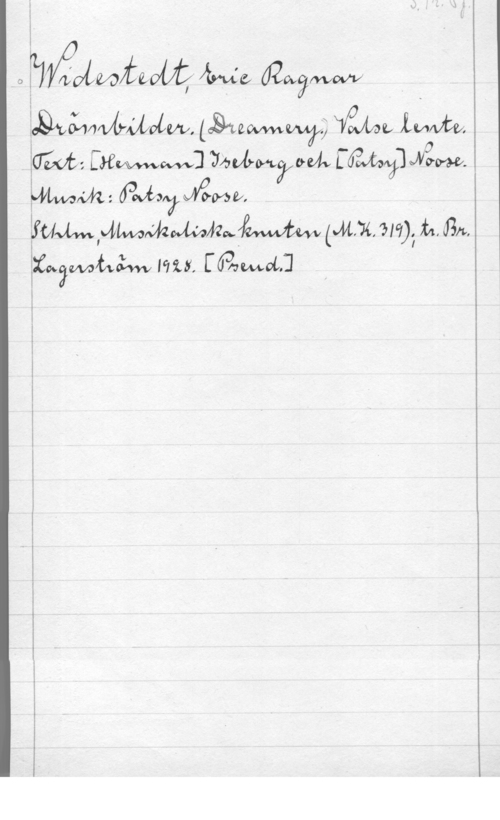 Widestedt, Eric Ragnar
Drömbilder. (Dreamery.) Valse lente.
Text: [Herman] Iseborg och [Patsy] Noose.
Musik: Patsy Noose.
Sthlm, Musikaliska knuten (M.K. 319); tr. Br.
Lagerström 1928. [Pseud.]